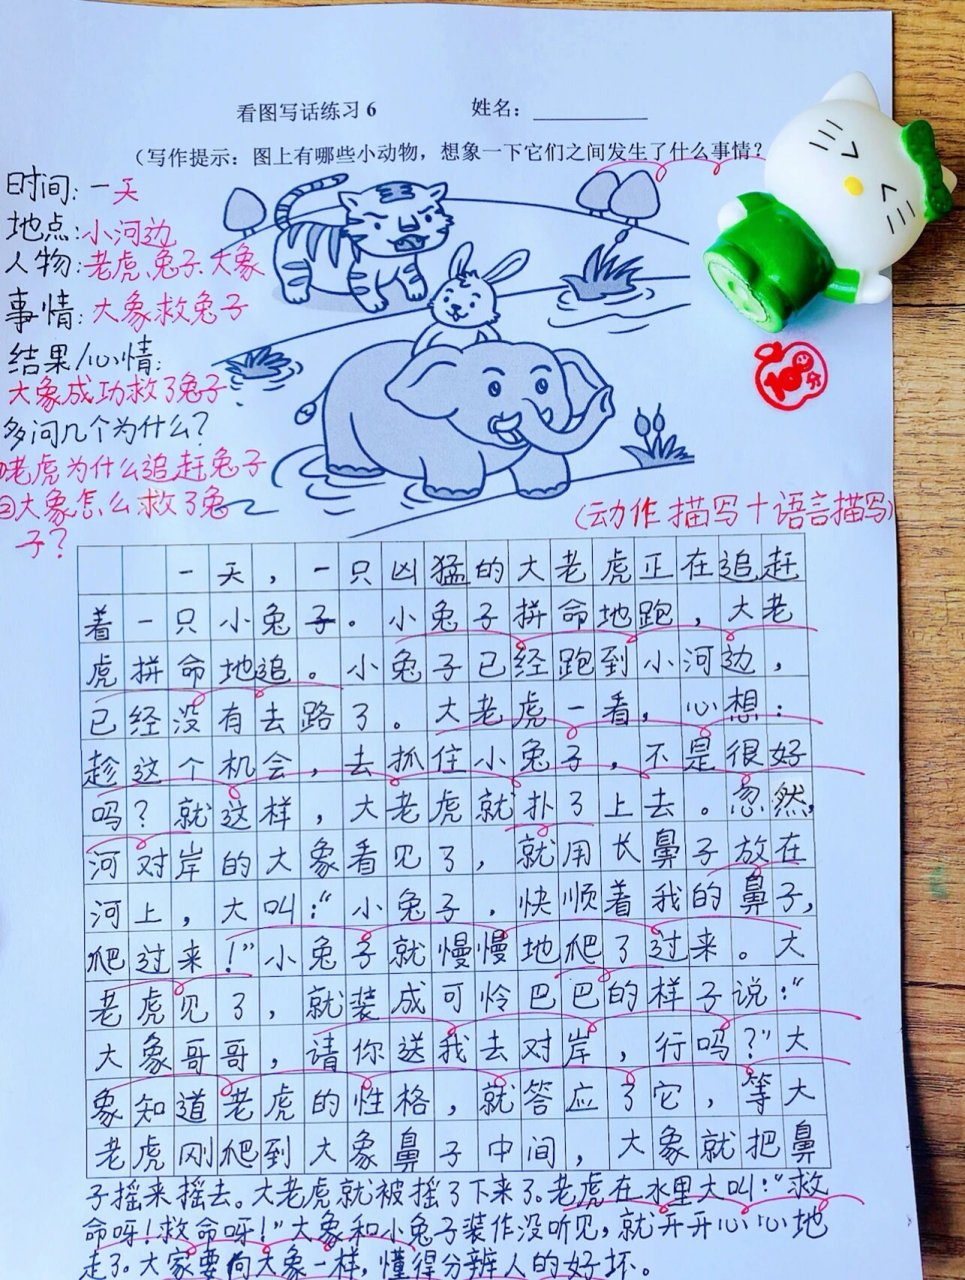 看图写话练习 6 姓名：
（写作提示：图上有哪些小动物，想象一下它们之间发生了什么事情？
时间：一天
地点：小河边
人物：老虎、兔子、大象
事情：大象救兔子
结果/心情：
大象成功救了兔子
多问几个为什么？
①老虎为什么追赶兔子
②大象怎么救了兔
子？
100分
（动作描写+语言描写）
一天，一只凶猛的大老虎正在追赶
着一只小兔子。小兔子拼命地跑，大老
虎拼命地追。小兔子已经跑到小河边，
已经没有去路了。大老虎一看，心想：
趁这个机会，去抓住小兔子，不是很好
吗？就这样，大老虎就扑了上去。忽然，
河对岸的大象看见了，就用长鼻子放在
河上，大叫：“小兔子，快顺着我的鼻子，
爬过来！”小兔子就慢慢地爬了过来。大
老虎见了，就装成可怜巴巴的样子说：“
大象哥哥，请你送我去对岸，行吗？”大
象知道老虎的性格，就答应了它，等大
老虎刚爬到大象鼻子中间，大象就把鼻
子摇来摇去。大老虎就被摇了下来了。老虎在水里大叫：“救
命呀！救命呀！”大象和小兔子装作没听见，就开开心心地
走了。大家要向大象一样，懂得分辨人的好坏。